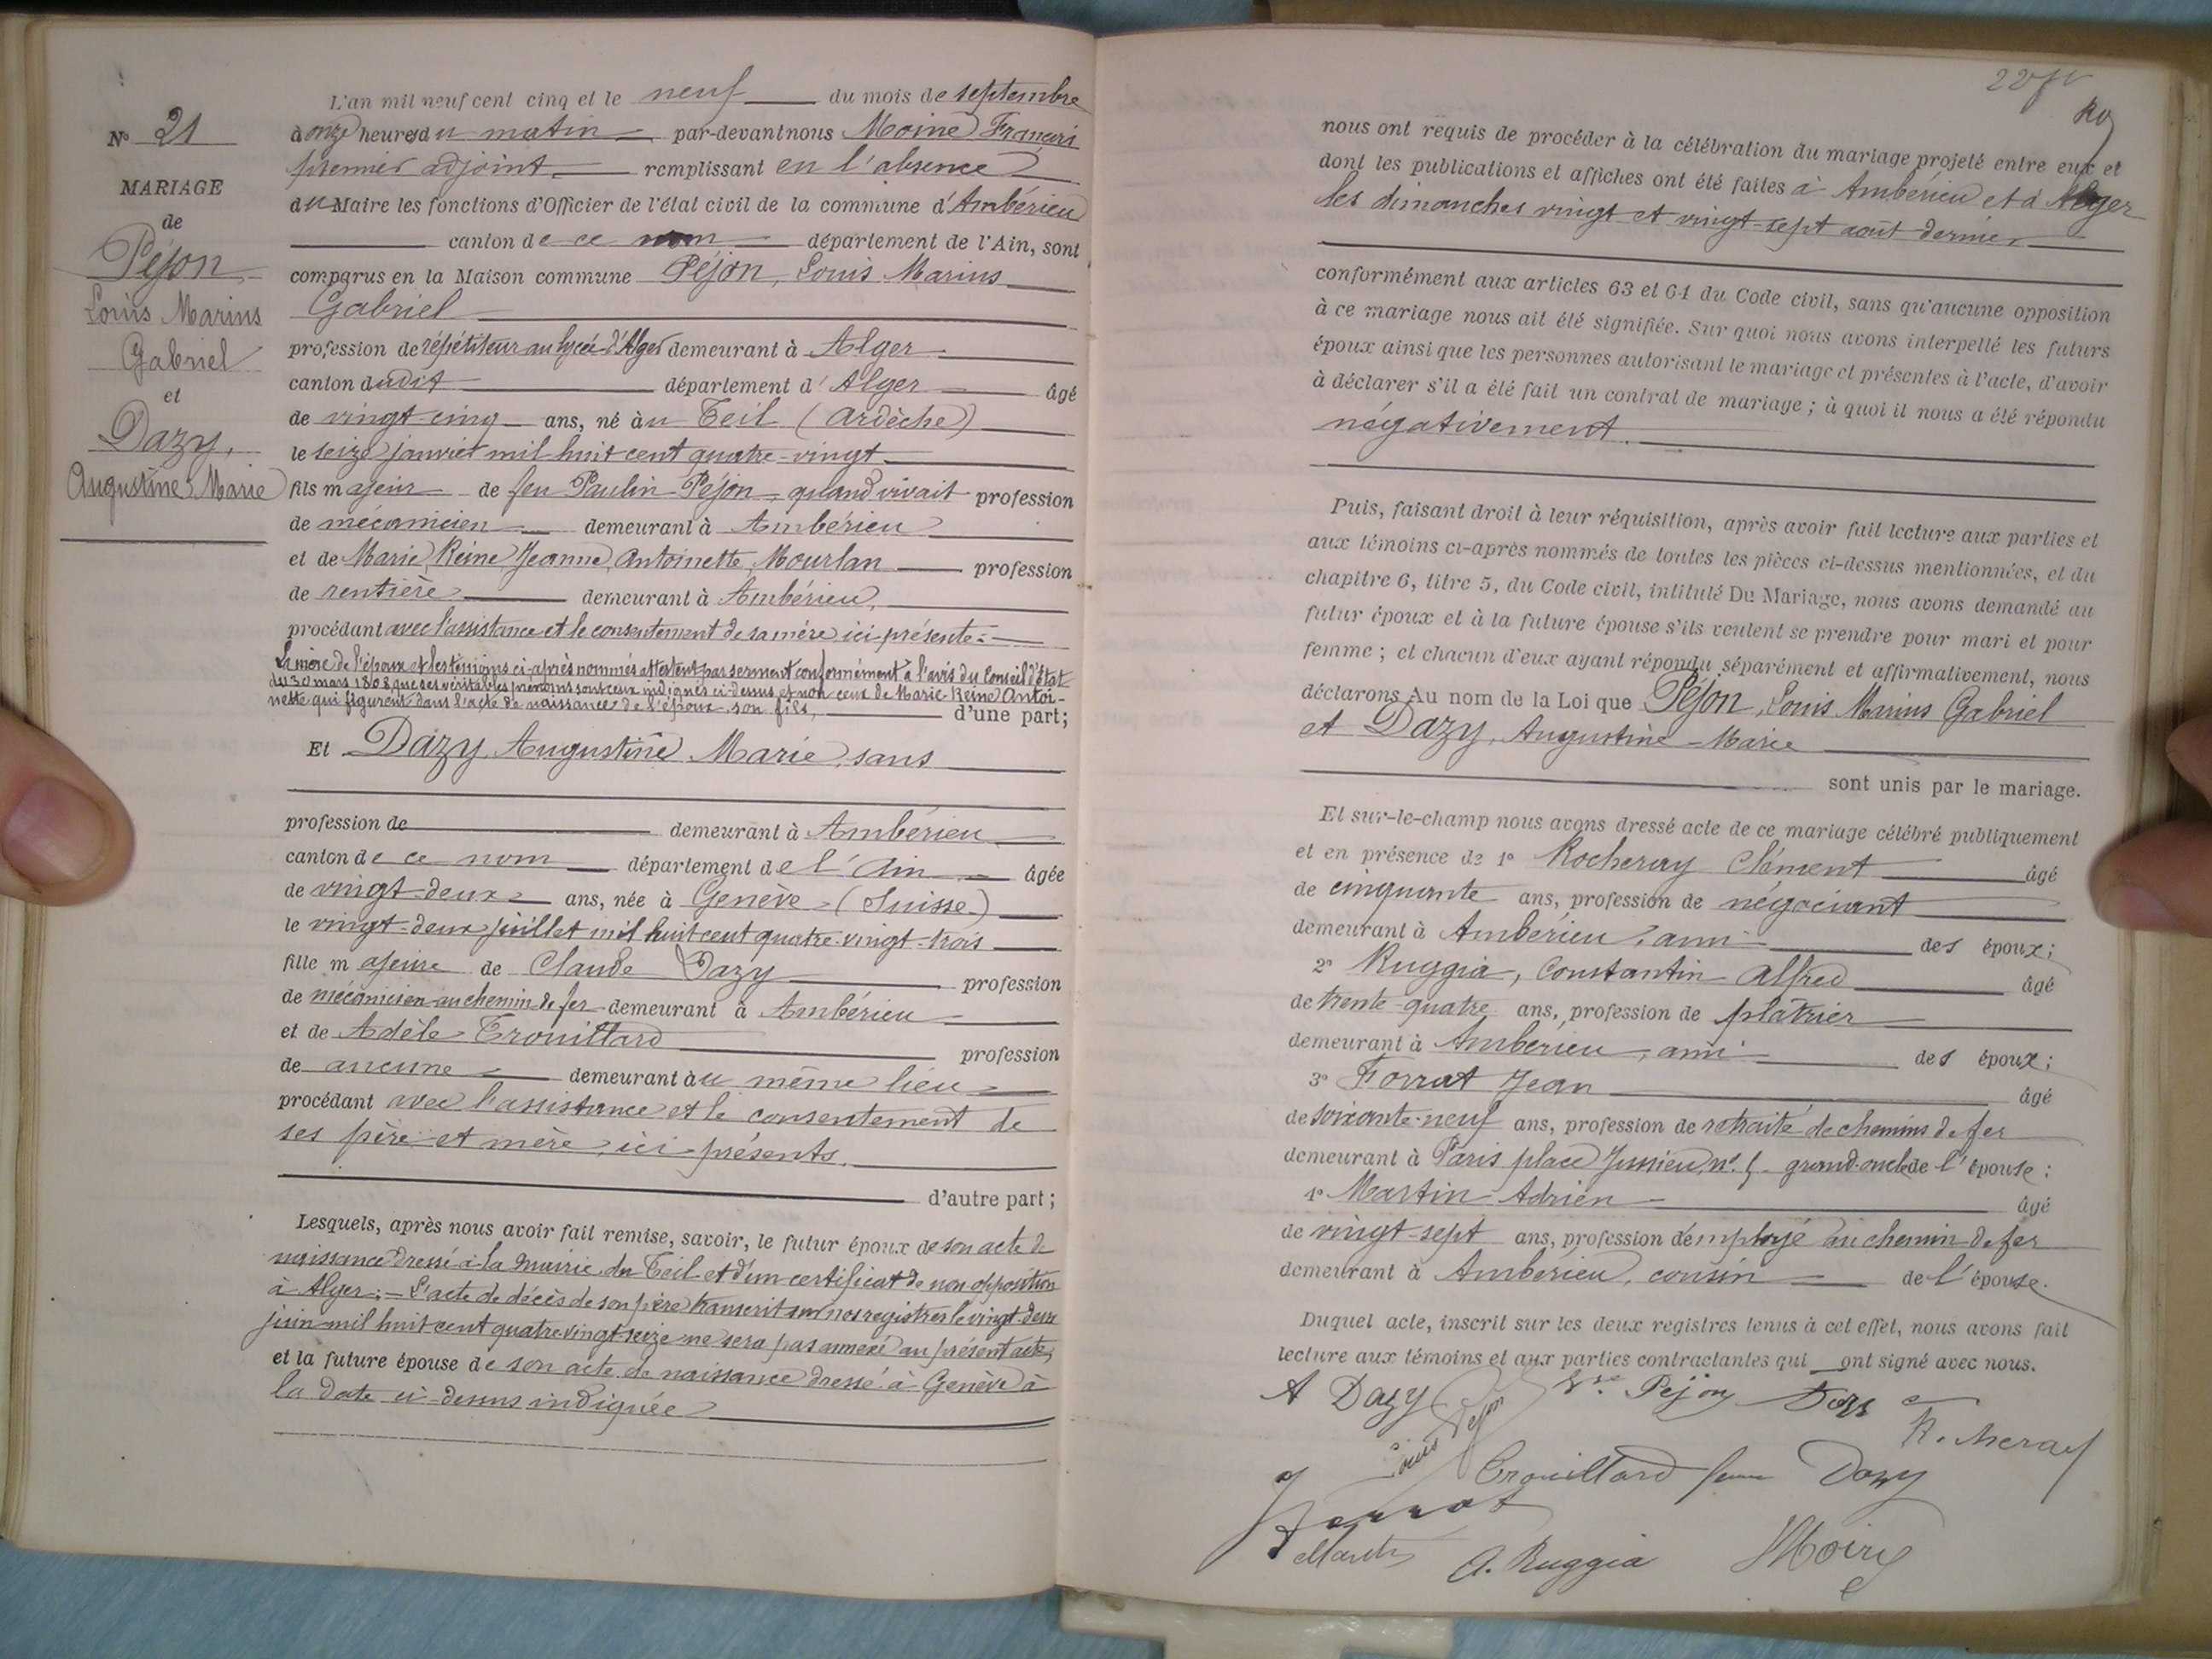 N° 21
MARIAGE
de
Péjon
Louis Marius
Gabriel
et
Dazy,
Augustine Marie
L'an mil neuf cent cinq et le neuf du mois de septembre
à onze heures du matin par-devant nous Moine François
premier adjoint remplissant en l'absence
du Maire les fonctions d'Officier de l'état civil de la commune d'Ambérieu
canton de ce nom département de l'Ain, sont
comparus en la Maison commune Péjon, Louis Marius
Gabriel
profession de répétiteur au lycée d'Alger demeurant à Alger
canton dudit département d'Alger âgé
de vingt-cinq ans, né au Teil (Ardèche)
le seize janvier mil huit cent quatre-vingt
fils majeur de feu Paulin Péjon, quand vivait profession
de mécanicien demeurant à Ambérieu
et de Marie Reine Jeanne Antoinette Mourlan profession
de rentière demeurant à Ambérieu,
procédant avec l'assistance et le consentement de sa mère ici présente.
La mère de l'époux et les témoins ci-après nommés attestent par serment conformément à l'avis du Conseil d'État
du 30 mars 1808 que ses véritables prénoms sont ceux indiqués ci-dessus et non ceux de Marie-Reine Antoi-
nette qui figurent dans l'acte de naissance de l'époux son fils, d'une part;
Et Dazy, Augustine Marie, sans
profession de demeurant à Ambérieu
canton de ce nom département de l'Ain âgée
de vingt-deux ans, née à Genève (Suisse)
le vingt-deux juillet mil huit cent quatre-vingt-trois
fille majeure de Claude Dazy profession
de mécanicien au chemin de fer demeurant à Ambérieu
et de Adèle Trouillard profession
de aucune demeurant au même lieu
procédant avec l'assistance et le consentement de
ses père et mère, ici présents.
d'autre part;
Lesquels, après nous avoir fait remise, savoir, le futur époux de son acte de
naissance dressé à la Mairie du Teil et d'un certificat de non opposition
à Alger. L'acte de décès de son père transcrit sur nos registres le vingt-deux
juin mil huit cent quatre-vingt-seize ne sera pas annexé au présent acte,
et la future épouse de son acte de naissance dressé à Genève à
la date ci-dessus indiquée
nous ont requis de procéder à la célébration du mariage projeté entre eux et
dont les publications et affiches ont été faites à Ambérieu et à Alger
les dimanches vingt et vingt-sept août dernier
conformément aux articles 63 et 64 du Code civil, sans qu'aucune opposition
à ce mariage nous ait été signifiée. Sur quoi nous avons interpellé les futurs
époux ainsi que les personnes autorisant le mariage et présentes à l'acte, d'avoir
à déclarer s'il a été fait un contrat de mariage; à quoi il nous a été répondu
négativement.
Puis, faisant droit à leur réquisition, après avoir fait lecture aux parties et
aux témoins ci-après nommés de toutes les pièces ci-dessus mentionnées, et du
chapitre 6, titre 5, du Code civil, intitulé Du Mariage, nous avons demandé au
futur époux et à la future épouse s'ils veulent se prendre pour mari et pour
femme; et chacun d'eux ayant répondu séparément et affirmativement, nous
déclarons Au nom de la Loi que Péjon, Louis Marius Gabriel
et Dazy, Augustine-Marie
sont unis par le mariage.
Et sur-le-champ nous avons dressé acte de ce mariage célébré publiquement
et en présence de 1° Rocheray Clément âgé
de cinquante ans, profession de négociant
demeurant à Ambérieu, ami des époux;
2° Ruggia, Constantin Alfred âgé
de trente-quatre ans, profession de plâtrier
demeurant à Ambérieu, ami des époux;
3° Forrat Jean âgé
de soixante-neuf ans, profession de retraité de chemins de fer
demeurant à Paris place Jussieu, n° 5 grand-oncle de l'épouse;
4° Martin Adrien âgé
de vingt-sept ans, profession d'employé au chemin de fer
demeurant à Ambérieu, cousin de l'épouse.
Duquel acte, inscrit sur les deux registres tenus à cet effet, nous avons fait
lecture aux témoins et aux parties contractantes qui ont signé avec nous.
A Dazy Vve Péjon
Louis Péjon
Trouillard femme Dazy
A. Ruggia Moine